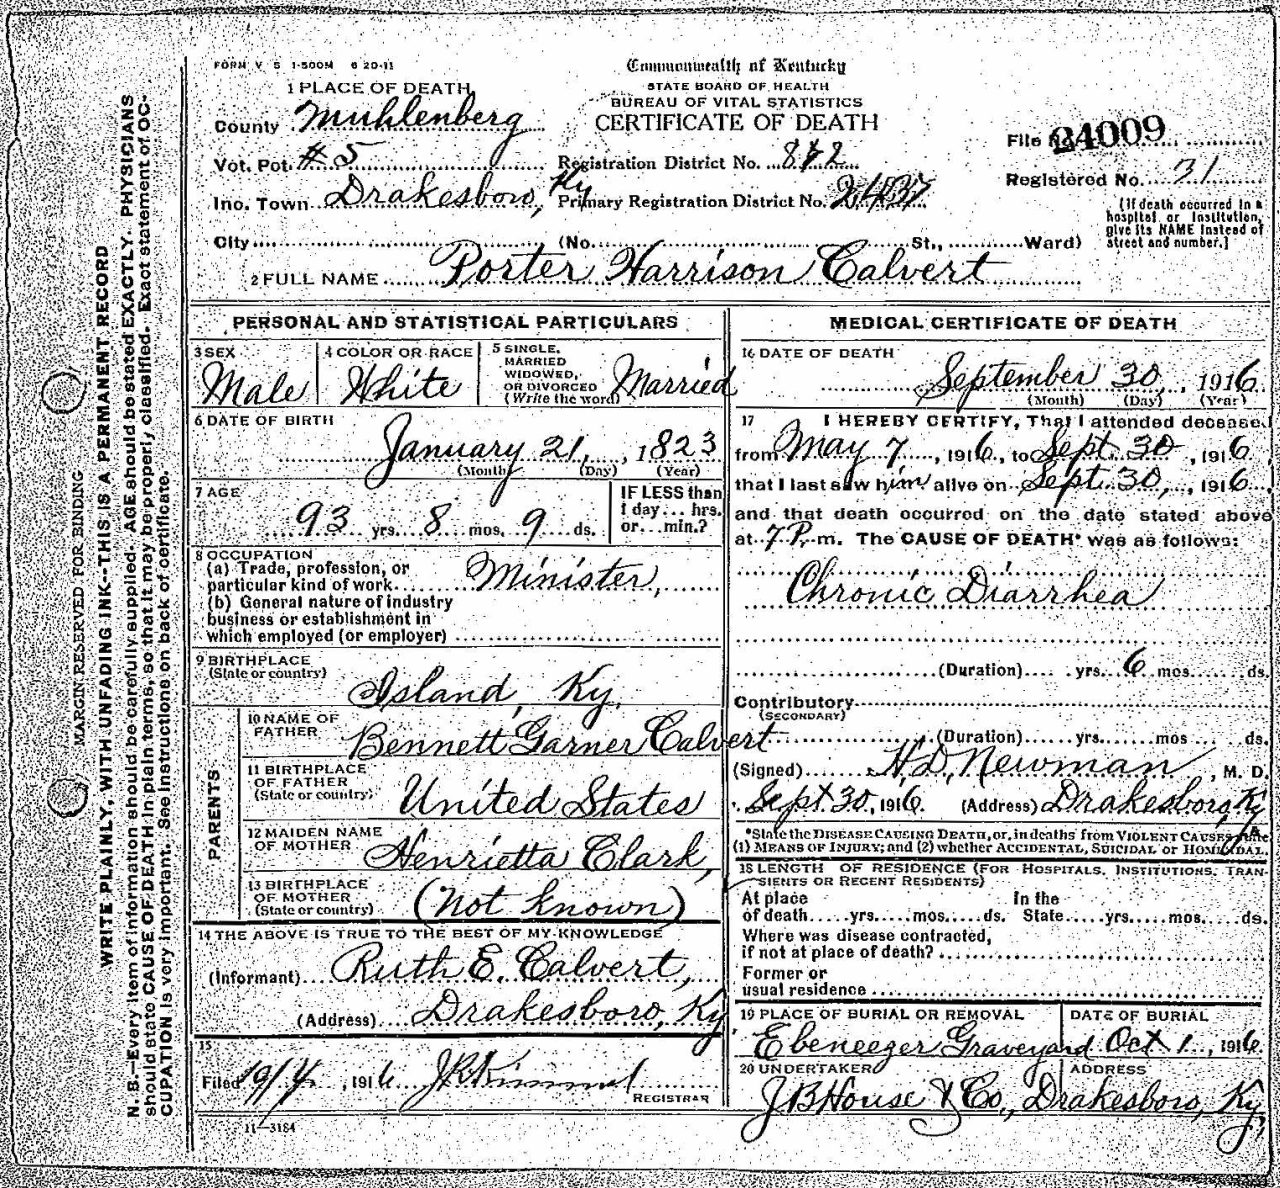 FORM V S 1-500M 6 20-11
Commonwealth of Kentucky
STATE BOARD OF HEALTH
BUREAU OF VITAL STATISTICS
CERTIFICATE OF DEATH
1 PLACE OF DEATH
County Muhlenberg
Vot. Pct #5
Registration District No. 872
Ino. Town Drakesboro, Ky
Primary Registration District No.
City (No. St., Ward)
File No. 24009
Registered No. 31
(If death occurred in a
hospital or institution,
give its NAME instead of
street and number.)
2 FULL NAME Porter Harrison Calvert
MARGIN RESERVED FOR BINDING
WRITE PLAINLY, WITH UNFADING INK--THIS IS A PERMANENT RECORD
N. B.—Every item of information should be carefully supplied. AGE should be stated EXACTLY. PHYSICIANS
should state CAUSE OF DEATH in plain terms, so that it may be properly classified. Exact statement of OC-
CUPATION is very important. See instructions on back of certificate.
PERSONAL AND STATISTICAL PARTICULARS
3 SEX
Male
4 COLOR OR RACE
White
5 SINGLE,
MARRIED
WIDOWED,
OR DIVORCED
(Write the word)
Married
6 DATE OF BIRTH
January 21, 1823
(Month) (Day) (Year)
7 AGE
93 yrs. 8 mos. 9 ds.
IF LESS than
1 day... hrs.
or...min.?
8 OCCUPATION
(a) Trade, profession, or
particular kind of work Minister,
(b) General nature of industry
business or establishment in
which employed (or employer)
9 BIRTHPLACE
(State or country)
Island, Ky.
PARENTS
10 NAME OF
FATHER
Bennett Garner Calvert
11 BIRTHPLACE
OF FATHER
(State or country)
United States
12 MAIDEN NAME
OF MOTHER
Henrietta Clark,
13 BIRTHPLACE
OF MOTHER
(State or country)
(Not known)
14 THE ABOVE IS TRUE TO THE BEST OF MY KNOWLEDGE
(Informant) Ruth E. Calvert,
(Address) Drakesboro, Ky
15
Filed 10/4, 1916 J R Kimmel
REGISTRAR
11-3184
MEDICAL CERTIFICATE OF DEATH
16 DATE OF DEATH
September 30, 1916
(Month) (Day) (Year)
17 I HEREBY CERTIFY, That I attended deceased
from May 7, 1916, to Sept. 30, 1916
that I last saw him alive on Sept. 30, 1916,
and that death occurred on the date stated above
at 7 P. m. The CAUSE OF DEATH* was as follows:
Chronic Diarrhea
(Duration) yrs. 6 mos. ds.
Contributory
(SECONDARY)
(Duration) yrs. mos ds.
(Signed) H.D. Newman, M. D.
Sept. 30, 1916. (Address) Drakesboro, Ky
*State the DISEASE CAUSING DEATH, or, in deaths from VIOLENT CAUSES, state
(1) MEANS OF INJURY; and (2) whether ACCIDENTAL, SUICIDAL or HOMICIDAL.
18 LENGTH OF RESIDENCE (FOR HOSPITALS, INSTITUTIONS, TRAN-
SIENTS OR RECENT RESIDENTS)
At place In the
of death yrs. mos. ds. State yrs. mos. ds.
Where was disease contracted,
if not at place of death?
Former or
usual residence
19 PLACE OF BURIAL OR REMOVAL
Ebeneezer Graveyard
DATE OF BURIAL
Oct 1, 1916
20 UNDERTAKER
J B House & Co.,
ADDRESS
Drakesboro, Ky,